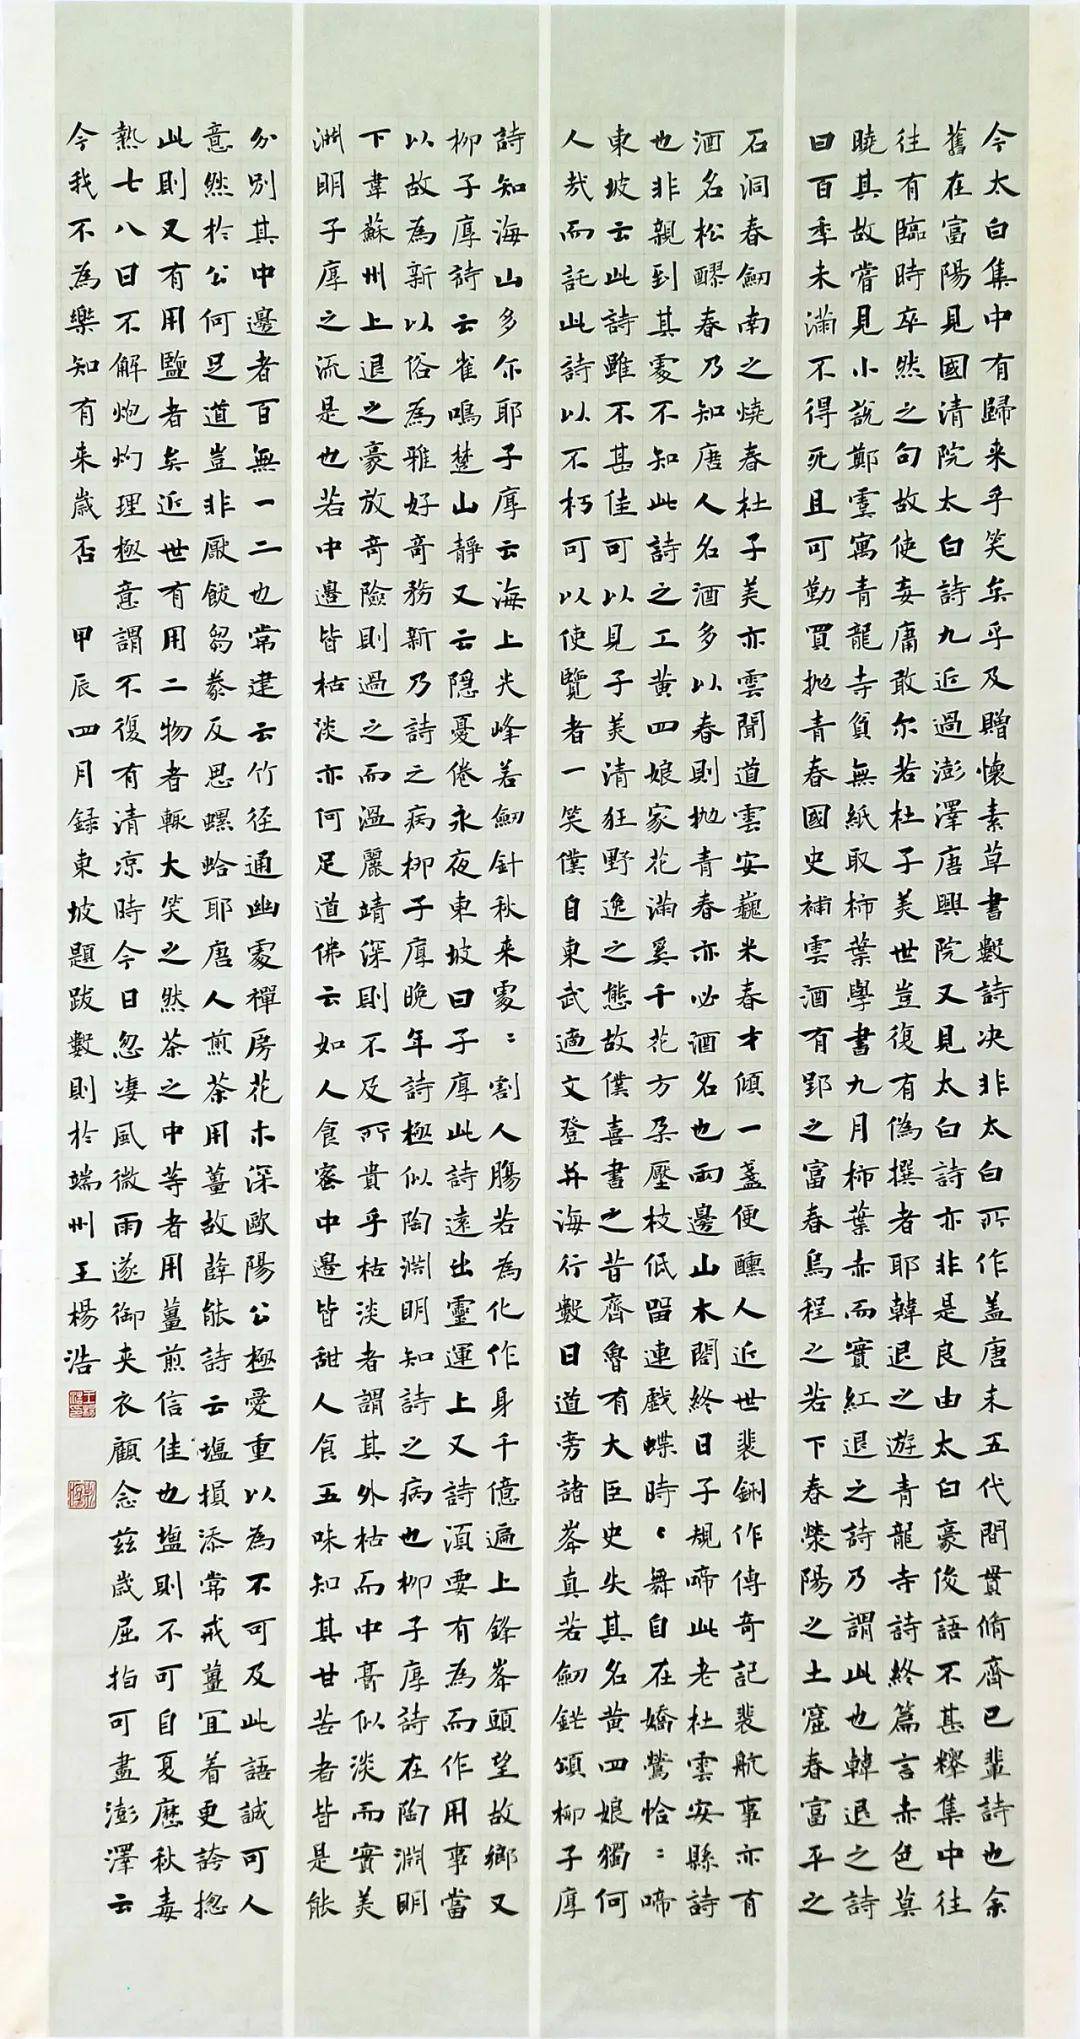 今太白集中有歸来乎笑矣乎及贈懷素草書數詩决非太白所作盖唐末五代間貫脩齊已輩詩也余
舊在富陽見國清院太白詩九近過澎澤唐興院又見太白詩亦非是良由太白豪俊語不甚擇集中往
往有臨時卒然之句故使妄庸敢尔若杜子美世豈復有偽撰者耶韓退之遊青龍寺詩終篇言赤色莫
曉其故嘗見小說鄭虔寓青龍寺貧無紙取柿葉學書九月柿葉赤而實紅退之詩乃謂此也韓退之詩
曰百年未滿不得死且可勤買抛青春國史補雲酒有郢之富春烏程之若下春滎陽之土窟春富平之
石洞春劒南之燒春杜子美亦雲聞道雲安麴米春才傾一盞便醺人近世裴鉶作傳奇記裴航事亦有
酒名松醪春乃知唐人名酒多以春則抛青春亦必酒名也兩邊山木閤終日子規啼此老杜雲安縣詩
也非親到其處不知此詩之工黄四娘家花滿奚千花方朵壓枝低留連戲蝶時〻舞自在嬌鶯恰〻啼
東坡云此詩雖不甚佳可以見子美清狂野逸之態故僕喜書之昔齊魯有大臣史失其名黄四娘獨何
人哉而託此詩以不朽可以使覽者一笑僕自東武適文登并海行數日道旁諸峯真若劒鋩頌柳子厚
詩知海山多尔耶子厚云海上尖峰若劒針秋来處〻割人腸若為化作身千億遍上鋒峯頭望故鄉又
柳子厚詩云雀鳴楚山靜又云隱憂倦永夜東坡曰子厚此詩遠出靈運上又詩湏要有為而作用事當
以故為新以俗為雅好奇務新乃詩之病柳子厚晚年詩極似陶渊明知詩之病也柳子厚詩在陶淵明
下韋蘇州上退之豪放奇險則過之而温麗靖深則不及所貴乎枯淡者謂其外枯而中膏似淡而實美
渊明子厚之流是也若中邊皆枯淡亦何足道佛云如人食蜜中邊皆甜人食五味知其甘苦者皆是能
分別其中邊者百無一二也常建云竹徑通幽處禪房花木深歐陽公極愛重以為不可及此語誠可人
意然於公何足道豈非厭飲芻豢反思螺蛤耶唐人煎茶用薑故薛能詩云塩損添常戒薑宜着更誇揔
此則又有用鹽者矣近世有用二物者輒大笑之然茶之中等者用薑煎信佳也塩則不可自夏歷秋毒
熱七八日不解炮灼理極意謂不復有清凉時今日忽凄風微雨遂御夾衣顧念兹歲屈指可盡澎澤云
今我不為樂知有来歲否 甲辰四月録東坡題跋數則於端州王楊浩